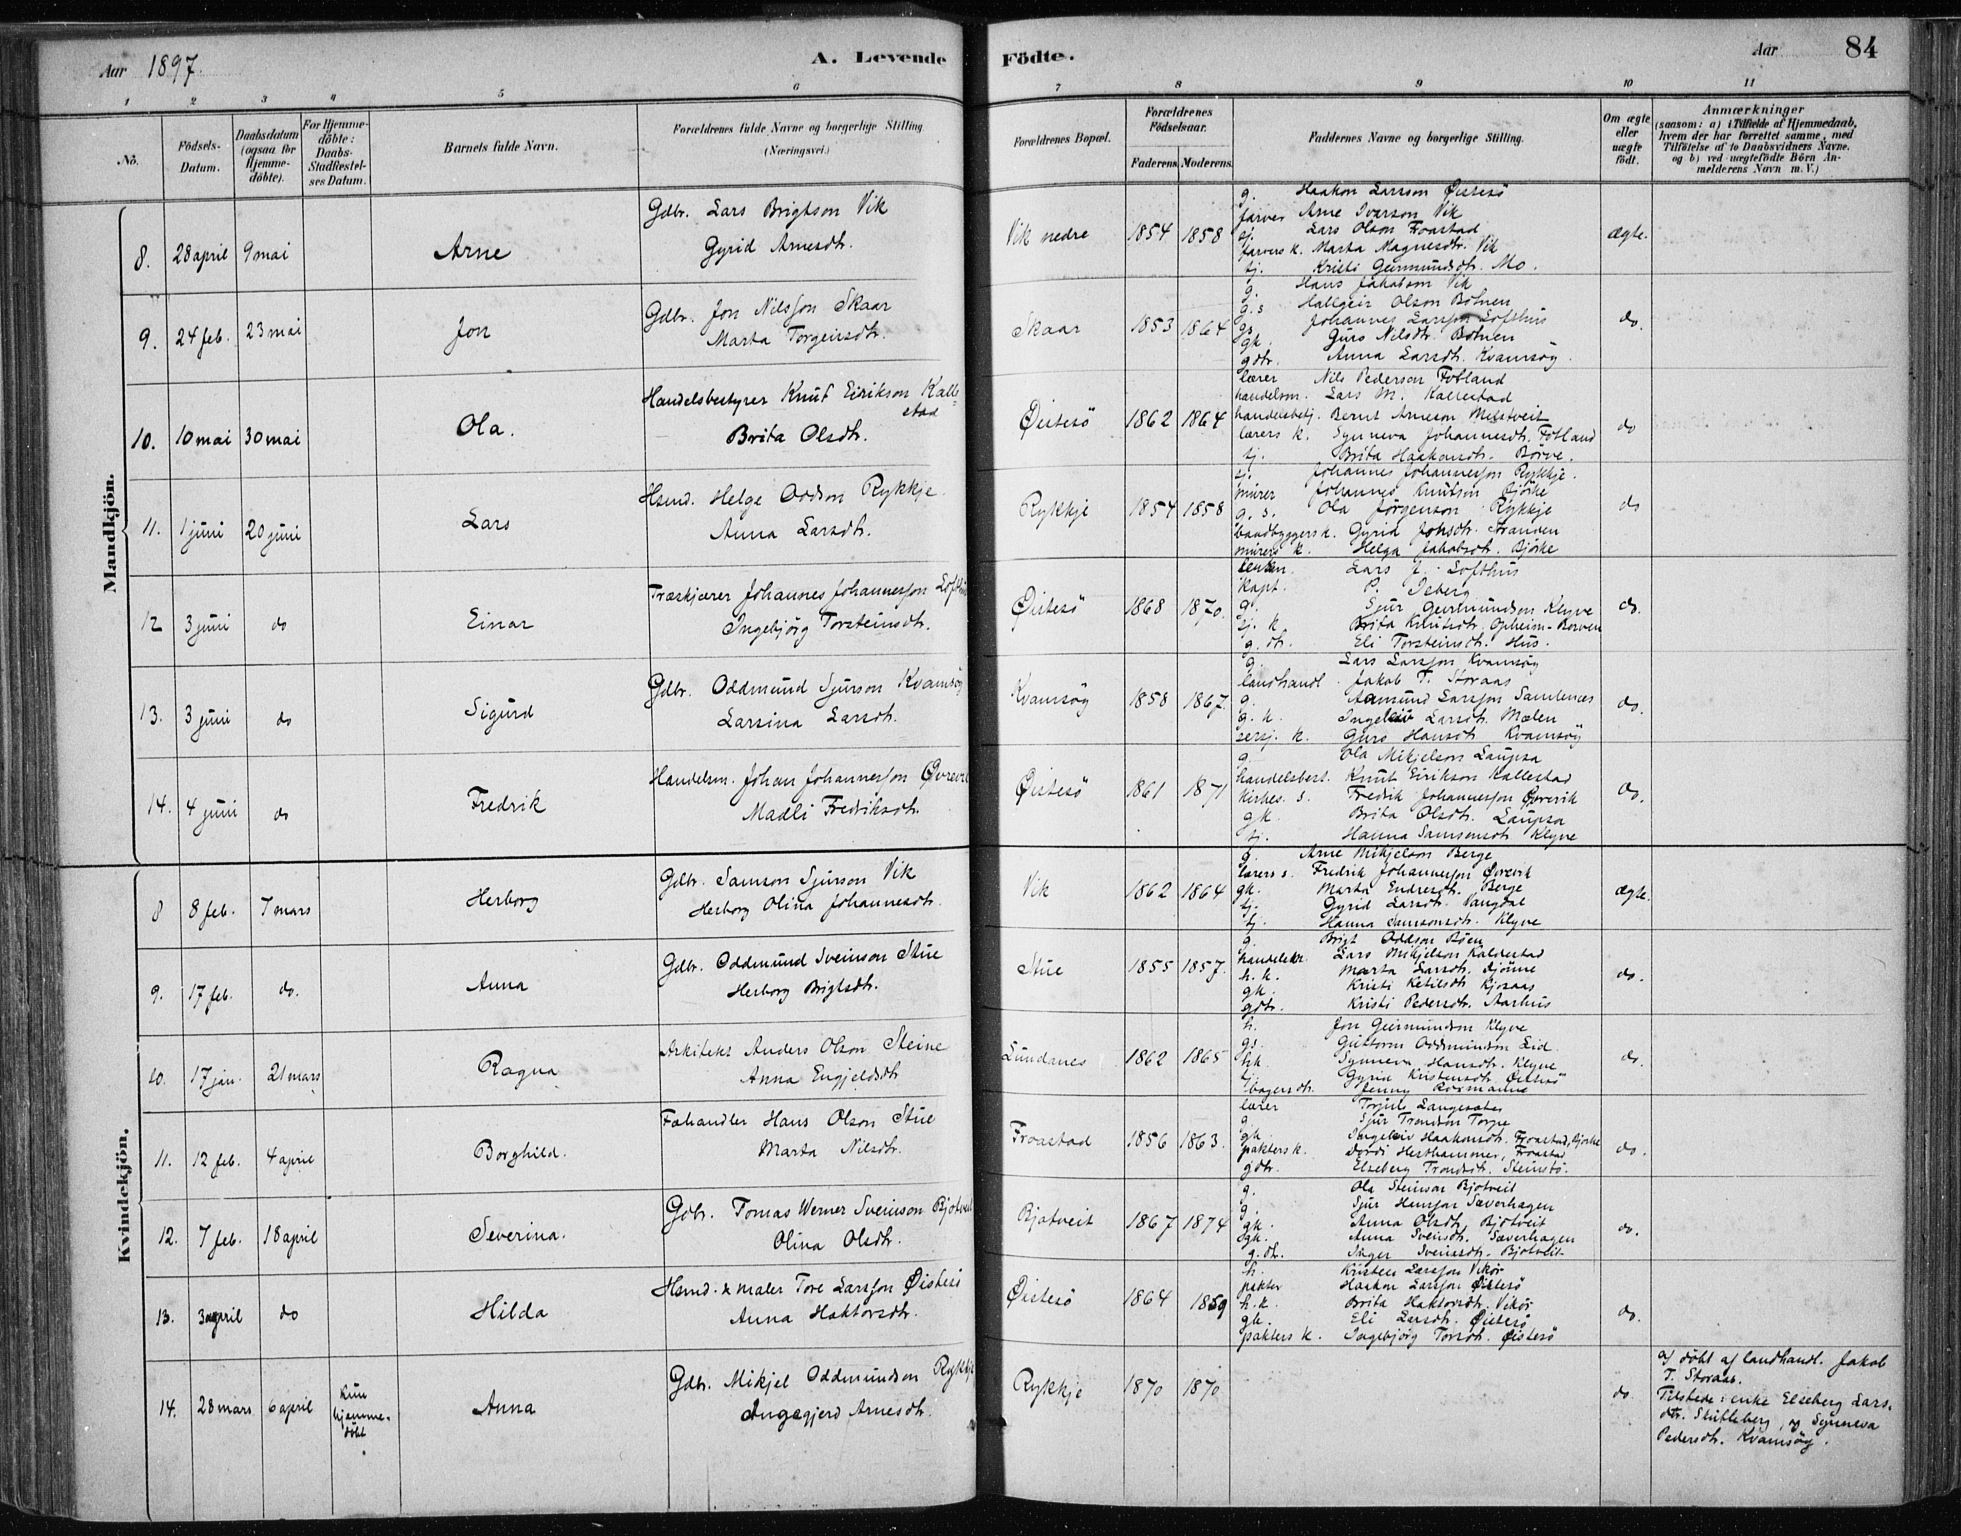 Aar 1897. A. Levende Födte. Aar 84
1 2 3 4 5 6 7 8 9 10 11
No.
Födsels-Datum.
Daabsdatum (ogsaa for Hjemme-döbte).
For Hjemme-döbte: Daabs-Stadfæstel-ses Datum.
Barnets fulde Navn.
Forældrenes fulde Navne og borgerlige Stilling (Næringsvei.)
Forældrenes Bopæl.
Forældrenes Födselsaar.
Faderens Moderens
Faddernes Navne og borgerlige Stilling.
Om ægte eller uægte födt.
Anmærkninger
(saasom: a) i Tilfælde af Hjemmedaab,
hvem der har forrettet samme, med
Tilföielse af to Daabsvidners Navne.
og b) ved uægtefödte Börn An-
melderens Navn m. V.)
Mandkjön.
8. 28 april 9 mai Arne
Gdbr. Lars Brigtson Vik
Gyrid Arnesdtr.
Vik nedre 1854 1858
g. Haakon Larsson Øistesö
farver Arne Ivarson Vik
Lars Olson Froastad
farvers k. Marta Magnesdtr. Vik
tj. Kristi Geirmundsdtr. Mo.
ægte.
9. 24 feb. 23 mai Jon
Gdbr. Jon Nilsson Skaar
Marta Torgeirsdtr.
Skaar 1853 1864
g. Hans Jakobson Vik
g.s Hallgeir Olson Botnen
gs. Johannes Larsson Lofthus
gk. Guro Nilsdtr. Botnen
gdtr. Anna Larsdtr. Kvamsöy.
do.
10. 10 mai 30 mai Ola.
Handelsbestyrer Knut Eirikson Kalle-
stad
Brita Olsdtr.
Øistesö 1862 1864
lærer Nils Pederson Fotland
handelsm. Lars M. Kallestad
handelsbetj. Bernt Arneson Melstveit
lærers k. Synneva Johannesdtr. Fotland
tj. Brita Haakonsdtr. Börve.
do
11. 1 juni 20 juni Lars
Hsmd. Helge Oddson Rykkje
Anna Larsdtr.
Rykkje 1854 1858
tj. Johannes Johannesson Rykkje.
murer Johannes Knutson Bjørke
g. s. Ola Jörgenson Rykkje
baadbyggers k. Gyrid Jonsdtr. Stranden
murers k. Helga Jakobsdtr. Bjørke
do
12 3 juni do Einar
Træskjærer Johannes Johannesson Lofthus
Ingebjörg Torsteinsdtr.
Øistesö 1868 1870.
Lars J. Lofthus
kapt. P. Isberg
g. Sjur Geirmundson Klyve
k. Brita Knutsdtr. Opheim-Borven
g. dtr. Eli Torsteinsdtr. Hus.
do.
13. 3 juni do Sigurd
Gdbr. Oddmund Sjurson Kvamsöy
Larsina Larsdtr.
Kvamsöy 1858 1867.
g. Lars Larsson Kvamsöy
landhandl. Jakob T. Storaas
g. Aamund Larsson Samlenes
g. k. Ingeleiv Larsdtr. Mælen
sersj. k. Guro Hansdtr Kvamsöy
do.
14. 4 juni do Fredrik
Handelsm. Johan Johannesson Øvrevik
Madli Fredriksdtr.
Øistesö 1861 1871
g. Ola Mikjelson Laupsa
handelsbest. Knut Eirikson Kallestad
kirkes. s. Fredrik Johannesson Øvrevik
gk. Brita Olsdtr. Laupsa
tj. Hanna Samsonsdtr Klyve
do.
Kvindekjön.
8 8 feb. 7 mars Herborg
Gdbr. Samson Sjurson Vik
Herborg Olina Johannesdtr.
Vik 1862 1864
g. Arne Mikjelson Berge
lærers s. Fredrik Johannesson Øvrevik
gk. Marta Endresdtr. Berge
tj. Gyrid Larsdtr. Vangdal
tj. Hanna Samsonsdtr. Klyve
ægte.
9. 17 feb. do. Anna
Gdbr. Oddmund Sveinson Stue
Herborg Brigtsdtr.
Stue 1855 1857.
g. Brigt Oddson Böen
Lars Mikjelson Kallestad
h. k. Marta Larsdtr. Djönne
gk. Kristi Ketilsdtr Kjosaas
gdtr. Kristi Pedersdtr. Aarhus
do.
10. 17 jan. 21 mars Ragna
Arkitekt Anders Olson Steine
Anna Engjeldsdtr
Lundanes 1862 1865
h. Jon Geirmundson Klyve
gs. Guttorm Oddmundson Eid
hk. Synneva Hansdtr. Klyve
tj. Gyrid Kristensdtr. Øistesö
bagersdtr. Jenny
do.
11. 12 feb. 4 april Borghild.
Fæhandler Hans Olson Stue
Marta Nilsdtr.
Froastad 1856 1863.
lærer Torjuls Langesæter
g Sjur Trondson Torpe
gk. Ingeleiv Haakonsdtr. Froastad, Bjørke
pakters k. Dordi Herthammer, Froastad
gdtr. Elseberg Trondsdtr. Steinstö.
do.
12. 7 feb. 18 april Severina.
Gdbr. Tomas Werner Sveinson Bjotveit
Olina Olsdtr.
Bjotveit 1867 1874
g. Ola Steinson Bjotveit
g. Sjur Hansson Sæverhagen
gk. Anna Olsdtr. Bjotveit
gk. Anna Sveinsdtr. Sæverhagen
g. dtr. Inger Sveinsdtr. Bjotveit
do.
13. 3 april do Hilda
Hsmd. & maler Tore Larsson Øistesö
Anna Haktorsdtr.
Øistesö 1864 1859
h. Kristen Larsson Vikör
pakter Haakon Larsson Øistesö
h.k. Brita Haktorsdtr. Vikör
gk. Eli Larsdtr. Øistesö
pakters k. Ingebjörg Torsdtr. Øistesö
do.
14. 28 mars 6 april kun hjemme-döbt Anna
Gdbr. Mikjel Oddmundson Rykkje
Ingegjerd Arnesdtr.
Rykkje 1870 1870 do.
af döbt af landhandl. Jakob
T. Storaas.
Tilstede: enke Elseberg Lars-
dtr. Skutleberg, og Synneva
Pedersdtr. Kvamsöy.